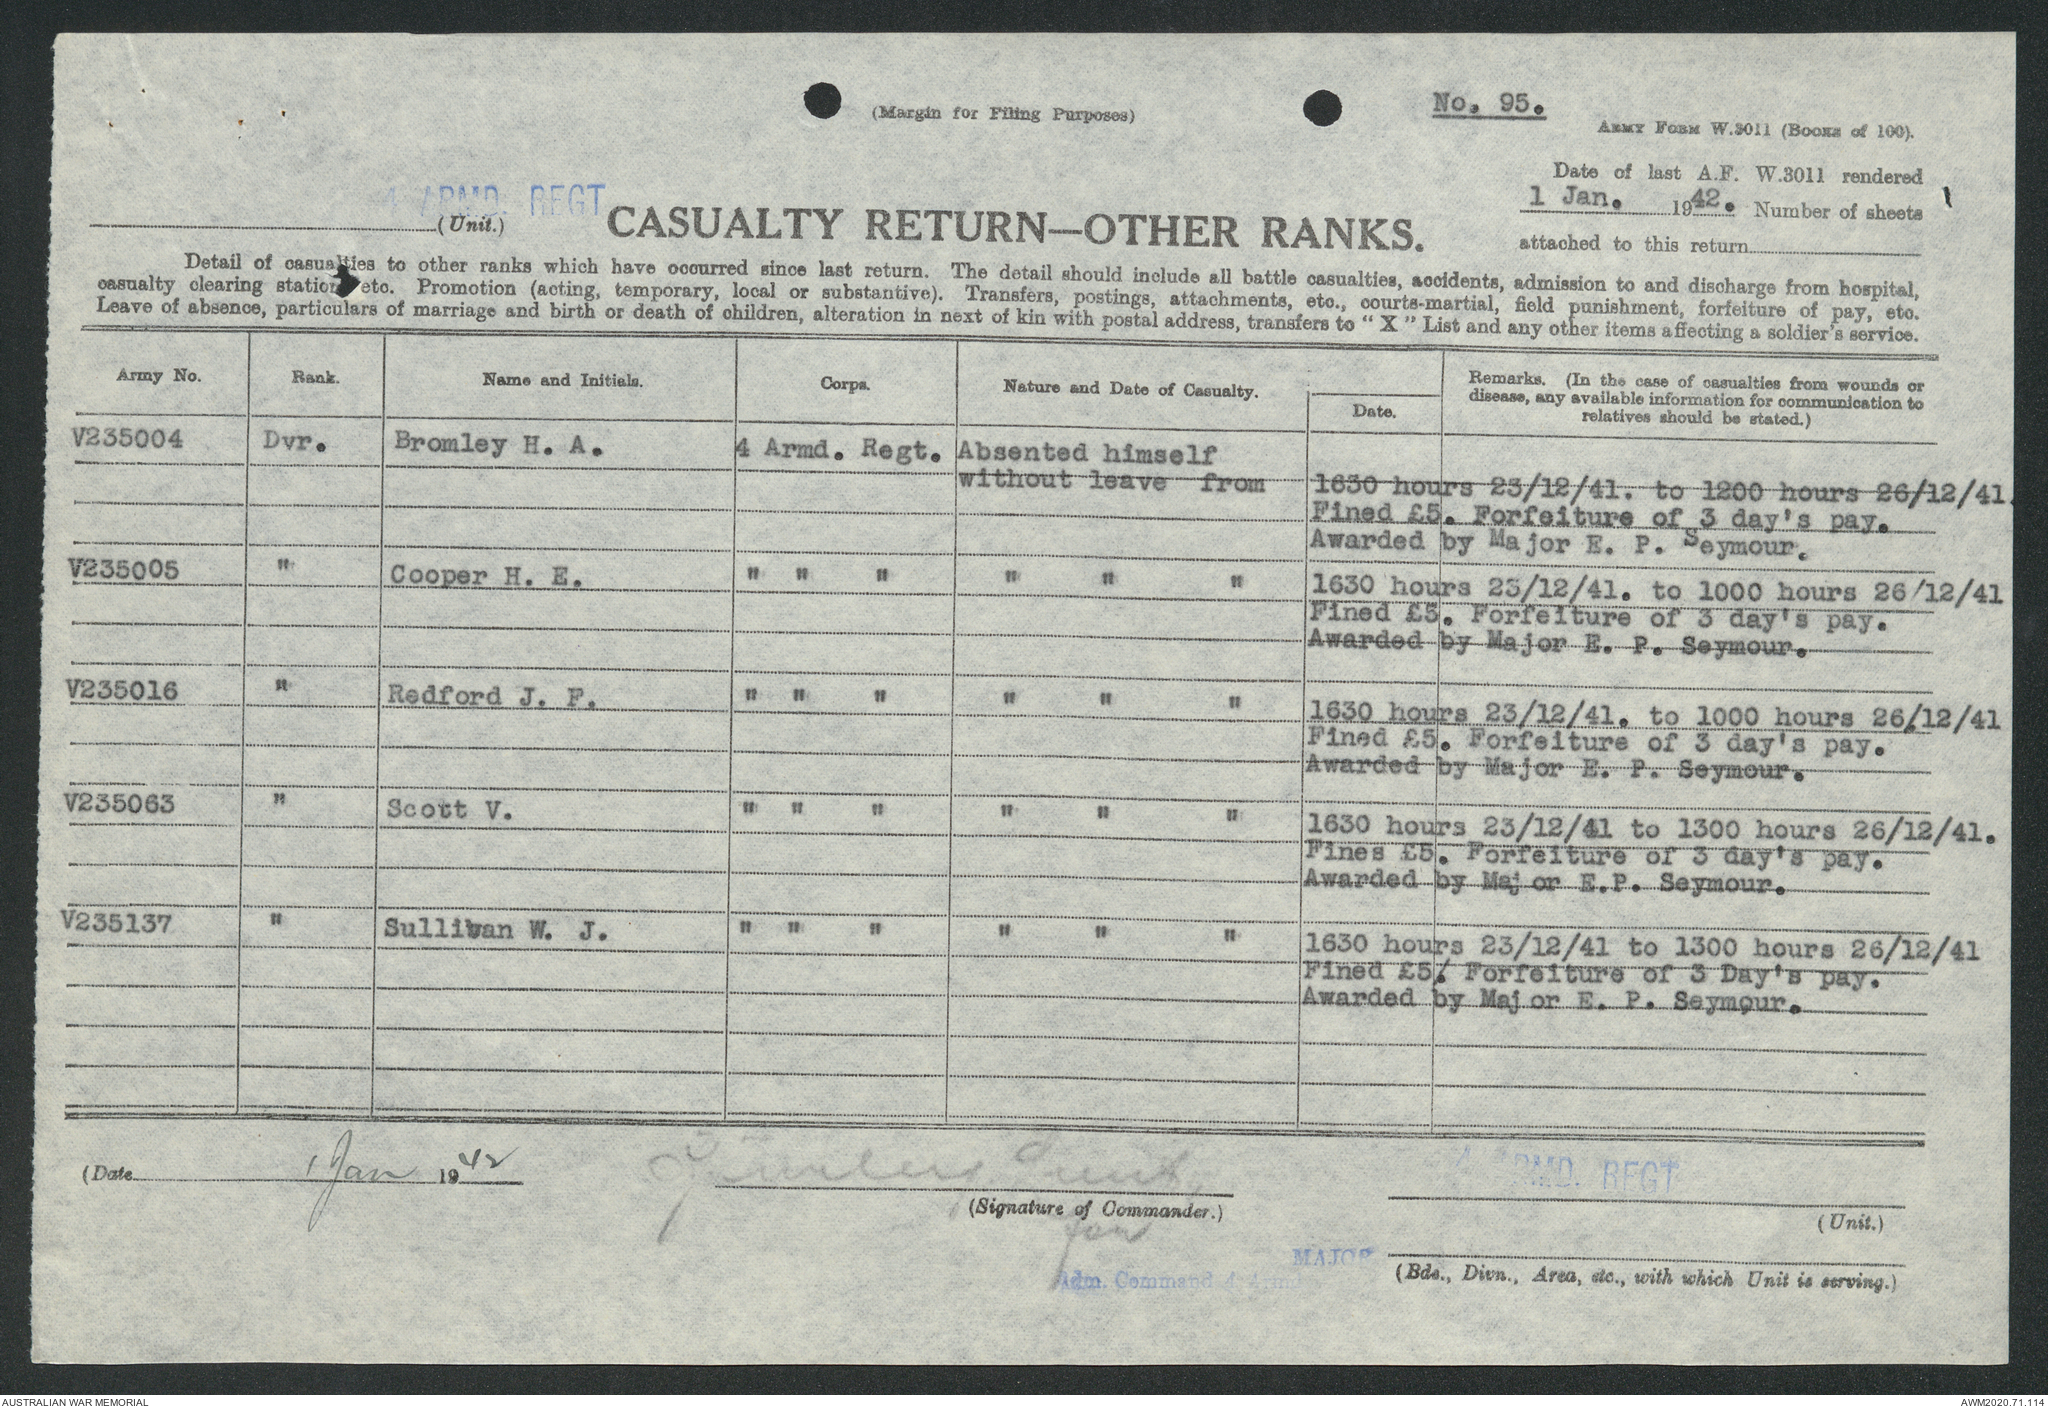 (Margin for Filing Purposes)
No. 95.
ARMY FORM W.3011 (BOOKS of 100).
Date of last A.F. W.3011 rendered
1 Jan. 1942. Number of sheets
attached to this return
4 ARMD. REGT
(Unit.)
CASUALTY RETURN—OTHER RANKS.
Detail of casualties to other ranks which have occurred since last return. The detail should include all battle casualties, accidents, admission to and discharge from hospital,
casualty clearing station, etc. Promotion (acting, temporary, local or substantive). Transfers, postings, attachments, etc., courts-martial, field punishment, forfeiture of pay, etc.
Leave of absence, particulars of marriage and birth or death of children, alteration in next of kin with postal address, transfers to "X" List and any other items affecting a soldier's service.
Army No. Rank. Name and Initials. Corps. Nature and Date of Casualty. Date. Remarks. (In the case of casualties from wounds or
disease, any available information for communication to
relatives should be stated.)
V235004 Dvr. Bromley H. A. 4 Armd. Regt. Absented himself
without leave from 1630 hours 23/12/41. to 1200 hours 26/12/41.
Fined £5. Forfeiture of 3 day's pay.
Awarded by Major E. P. Seymour.
V235005 " Cooper H. E. " " " " " " 1630 hours 23/12/41. to 1000 hours 26/12/41
Fined £5. Forfeiture of 3 day's pay.
Awarded by Major E. P. Seymour.
V235016 " Redford J. F. " " " " " " 1630 hours 23/12/41. to 1000 hours 26/12/41
Fined £5. Forfeiture of 3 day's pay.
Awarded by Major E. P. Seymour.
V235063 " Scott V. " " " " " " 1630 hours 23/12/41 to 1300 hours 26/12/41.
Fines £5. Forfeiture of 3 day's pay.
Awarded by Major E.P. Seymour.
V235137 " Sullivan W. J. " " " " " " 1630 hours 23/12/41 to 1300 hours 26/12/41
Fined £5. Forfeiture of 3 Day's pay.
Awarded by Major E. P. Seymour.
(Date 1 Jan 1942
(Signature of Commander.)
for
4 ARMD. REGT
(Unit.)
MAJOR
Adm. Command 4 Armd
(Bde., Divn., Area, etc., with which Unit is serving.)
AUSTRALIAN WAR MEMORIAL
AWM2020.71.114